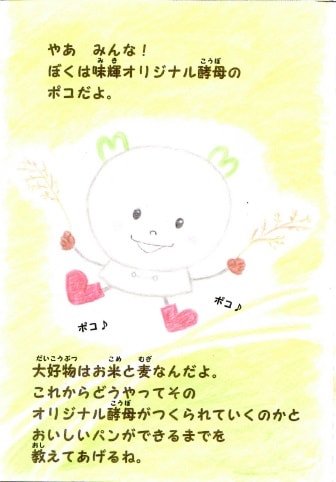 やあ　みんな！
ぼくは味輝オリジナル酵母の
ポコだよ。
ポコ♪
ポコ♪
大好物はお米と麦なんだよ。
これからどうやってその
オリジナル酵母がつくられていくのかと
おいしいパンができるまでを
教えてあげるね。